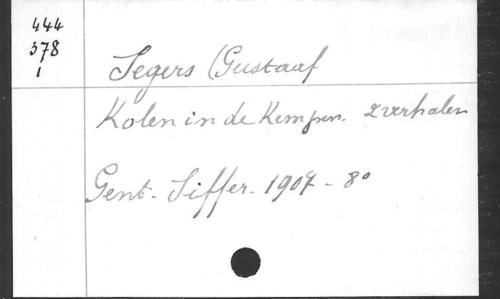 444
378
1
Segers (Gustaaf
Kolen in de Kempen. 2 verhalen
Gent. Siffer. 1907 - 8°